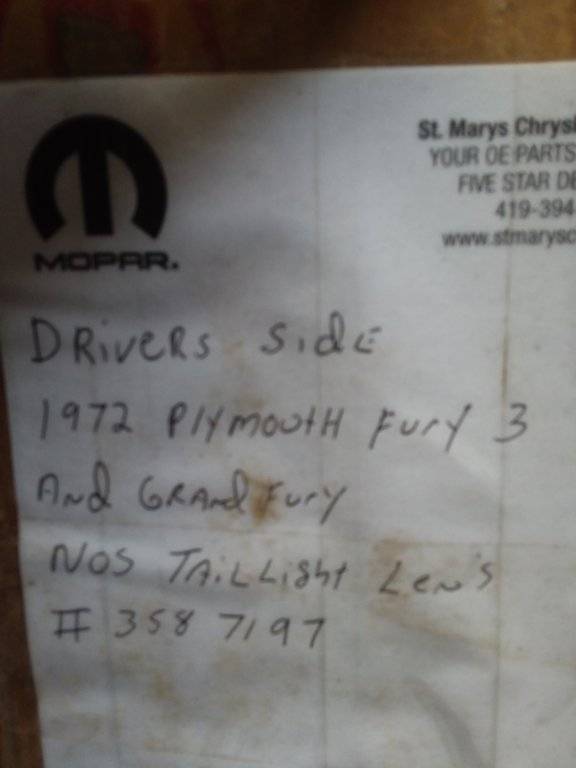 MOPAR.
St. Marys Chrysl
YOUR OE PARTS
FIVE STAR DE
419-394
www.stmarysc
DRiveRs Side
1972 PlymoutH Fury 3
And GRAnd Fury
NOS TAiLLight Len's
# 358 7197